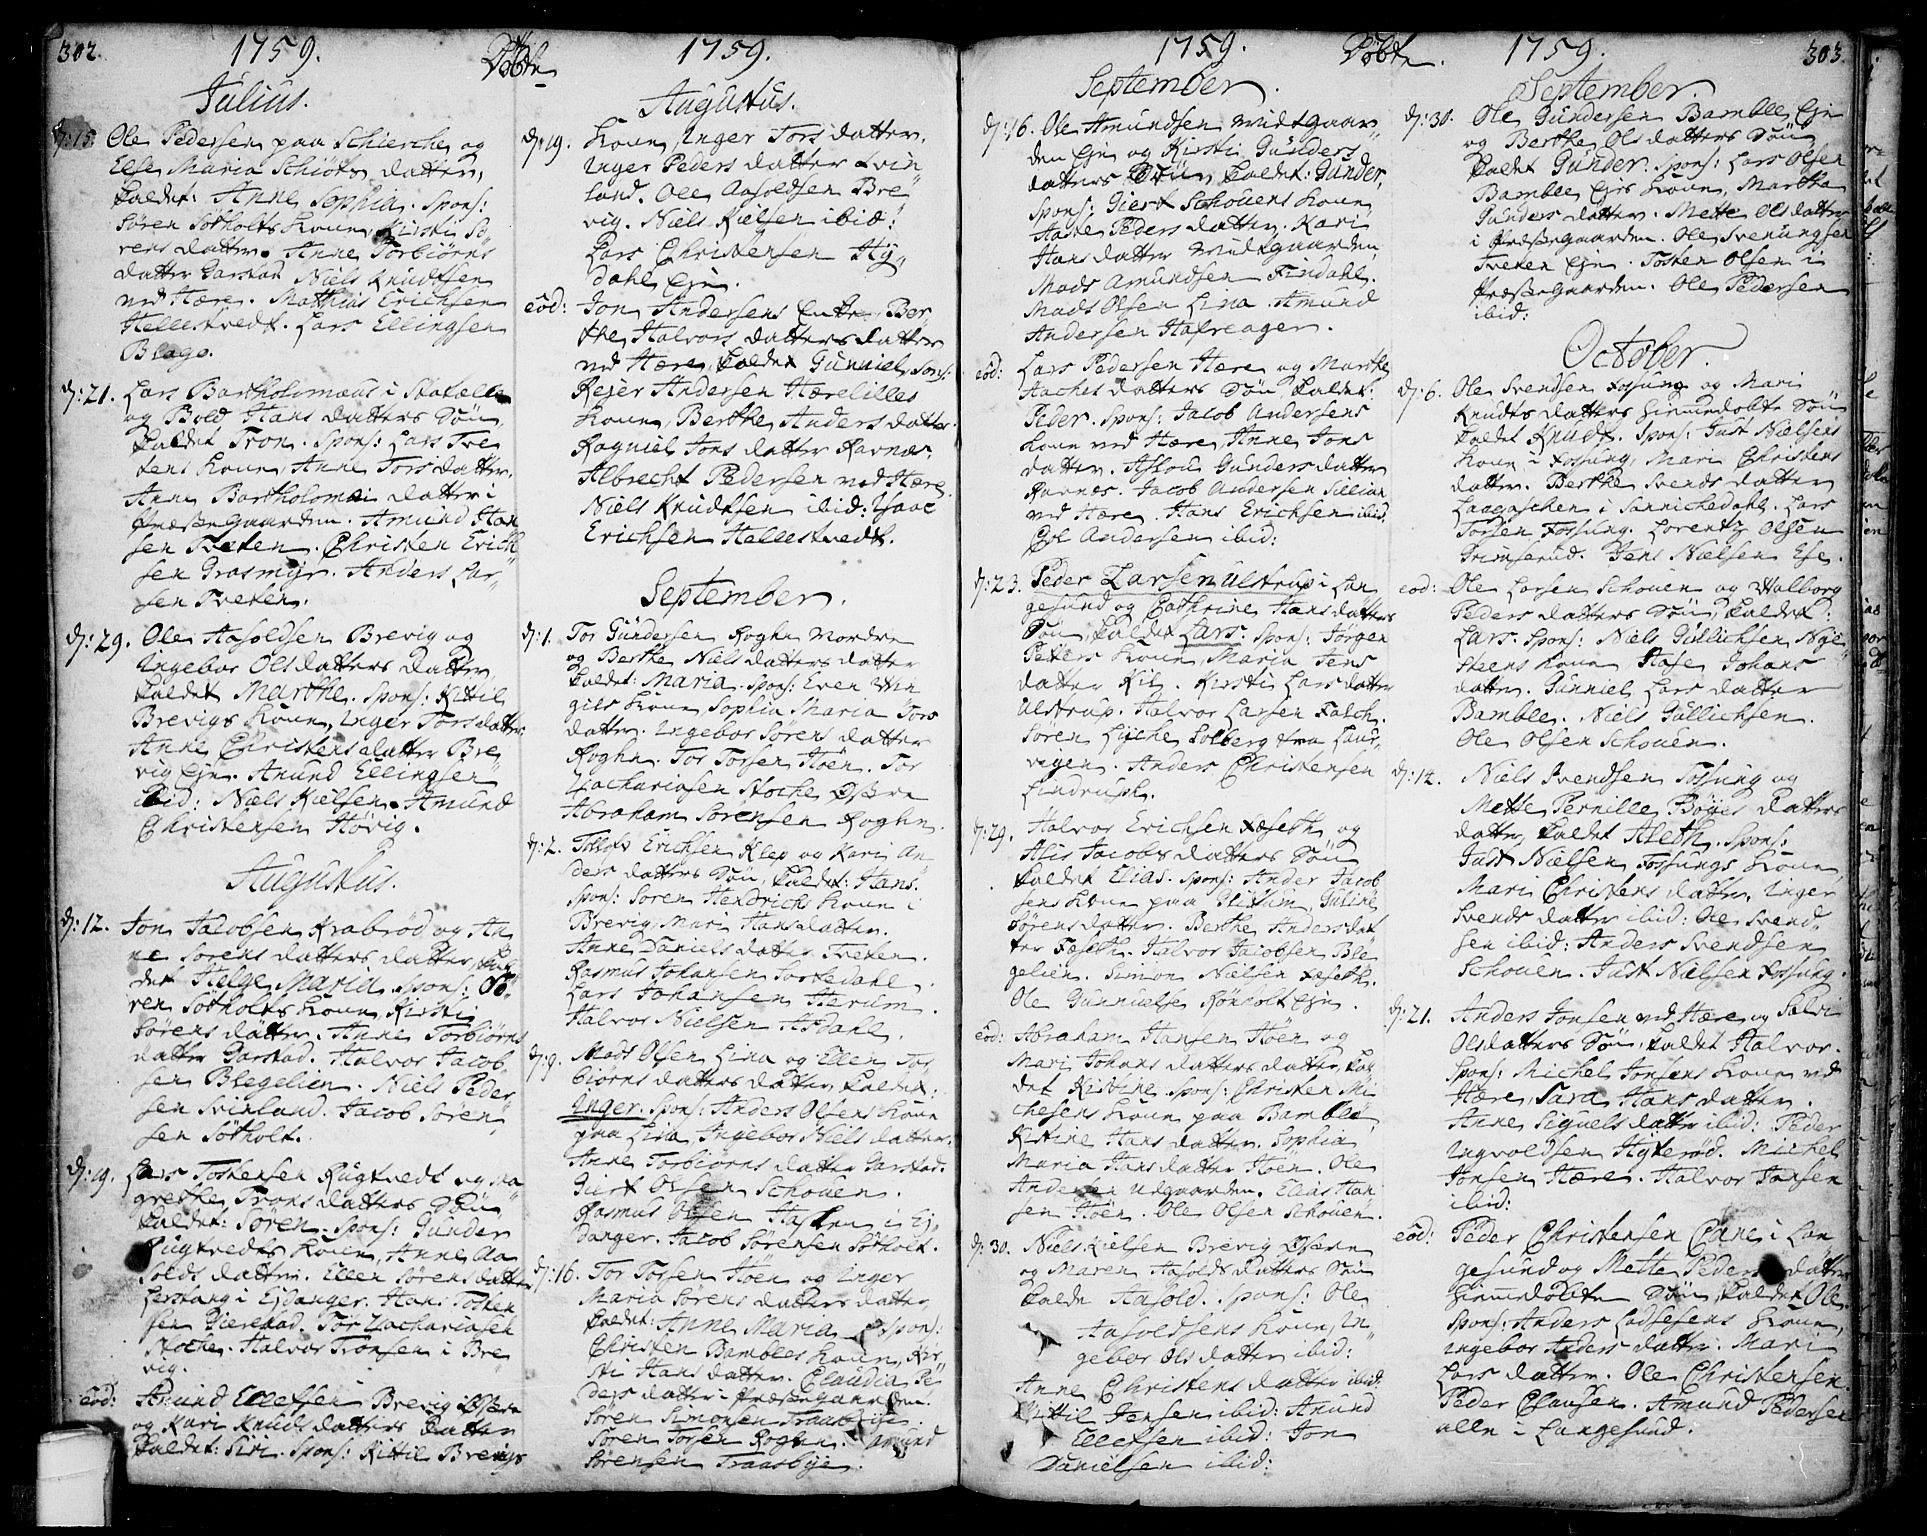 302.
1759.
Døbte
Julius.
d: 15. Ole Pedersen paa Schierche og
Else Maria Schiöts datter,
kaldet: Anne Sophia. Spons:
Sören Søtholts Koune, Kirsti Sö
rens datter. Anne Torbiörns
datter Garstad Niels Knudsen
ved Hære. Mathias Erichsen
Hellestvedt. Lars Ellingsen
Blage.
d: 21. Lars Bartholomæus i Statelle
og Bold Hans datters Sön
kaldet Tron. Spons: Lars Tve
tens Koune, Anne Torsdatter.
Anne Bartholomæi datter i
Præstegaarden. Amund Han
sen Tveten. Christen Erich
sen Grasmyr. Anders Lar
sen Tveten.
d: 29. Ole Aasoldsen Brevig og
Ingebor Olsdatters datter
kaldet Marthe. Spons: Kittil
Brevigs Koune, Inger Torsdatter
Anne Christens datter Bre
vig Eje. Amund Ellingsen
ibid: Niels Kielsen. Amund
Christensen Hövig.
Augustus.
d: 12. Jon Jacobsen Krabröd og An
ne Sörens datters datter, kal
det Helge Maria. Spons: Sö
ren Søtholts Koune, Kirsti
Sörens datter. Anne Torbiörns
datter Garstad. Halvor Jacob
sen Blegelien. Niels Peder
sen Svinland. Jacob Sören
sen Søtholt.
d: 19. Lars Tostensen Rugtvedt og Ma
grethe Trons datters Sön
kaldet: Sören. Spons: Gunder
Rugtvedts Koune, Anne Aa
solds datter. Ellen Sörens datter
Lerstang i Ejdanger. Hans Tosten
sen Gierestad. Tor Zachariasen
Stoche. Halvor Tronsen i Bre
vig.
eod: Amund Ellefsen Brevig Östre
og Kari Knuds datters datter
kaldet: Siri. Spons: Kittil Brevigs
1759.
Augustus.
d: 19. Koune, Inger Torsdatter.
Inger Peders datter Svin
land. Ole Aasoldsen Bre
vig. Niels Kielsen ibid:
Lars Christensen Hy
dahl Eje.
eod: Jon Andersens Enke Ber
the Halvors datters datter
ved Hære, kaldet Gunniel, Spons:
Rejer Andersen Hærelilles
Koune, Berthe Anders datter.
Ragniel Jons datter Ravnes.
Albrecht Pedersen ved Hære.
Niels Knudsen ibid: Isaac
Erichsen Hellestvedt.
September.
d: 1. Tor Gundersen Roghn Nordre
og Berthe Niels datters datter
kaldet: Maria. Spons: Even Vin
gils Koune, Sophia Maria Tors
datter. Ingebor Sörens datter
Roghn. Tor Torsen Höen. Tor
Zachariasen Stoche Östre
Abraham Sörensen Roghn.
d: 2. Tollof Erichsen Klep og Kari An
ders datters Sön, kaldet: Hans.
Spons: Sören Hendrichs Koune i
Brevig, Mari Hansdatter.
Anne Daniels datter Tveten.
Rasmus Johansen Torkedahl.
Lars Johansen Herum.
Halvor Nielsen Asdahl.
d: 9. Mads Olsen Lina og Ellen Tor
biörns datters datter, kaldet:
Inger. Spons: Anders Olsens Koune
paa Lina, Ingebor Niels datter.
Anne Torbiörns datter Garstad.
Giert Olsen Schouen.
Rasmus Olsen Hasslen i Ej
danger. Jacob Sörensen Søtholt.
d: 16. Tor Torsen Höen og Inger
Maria Sörens datters datter,
kaldet: Anne Maria. Spons:
Christen Bambles Koune, Kir
sti Hans datter. Claudia Pe
ders datter i Præstegaarden.
Sören Simonsen Traasbye.
Sören Torsen Roghn. Amund
Sörensen Traasbye.
1759.
Døbte.
September.
d: 16. Ole Amundsen Midtgaar
den Eje og Kirsti Gunders
datters Sön, kaldet: Gunder.
Spons: Giert Schouens Koune
Aaste Peders datter. Kari
Hans datter Midtgaarden,
Mads Amundsen Findahl.
Mads Olsen Lina. Amund
Andersen Hafreager.
eod: Lars Pedersen Hære og Marthe
Aaches datters Sön kaldet:
Peder. Spons: Jacob Andersens
Koune ved Hære, Anne Jons
datter. Aslou Gunders datter
Ravnes. Jacob Andersen Sillian
ved Hære. Hans Erichsen ibid.
Ole Andersen ibid:
d: 23. Peder Larsen Ulstrup i Lan
gesund og Cathrine Hans datters
Sön, kaldet Lars. Spons: Jörgen
Peters Koune, Maria Jens
datter Kil. Kirsti Lars datter
Ulstrup. Halvor Larsen Falch.
Sören Lyche Solberg fra Laur
vigen. Anders Christensen
Lindrupt.
d: 29. Halvor Erichsen Feseth og
Alis Jacobs datters Sön
kaldet Elias. Spons: Ander Jacob
sens Koune paa Ulitum, Guline
Sörens datter. Berthe Anders dat
ter Feseth. Halvor Jacobsen Ble
gelien. Simon Nielsen Feseth.
Ole Gunnielse Rönholt Eje.
eod: Abraham Hansen Höen og
Mari Johans datters datter, kal
det Kistine. Spons: Christen Mi
chelsens Koune paa Bamble
Kistine Hans datter. Sophia
Maria Hans datter Höen. Ole
Andersen Udgaarden. Elias Han
sen Höen. Ole Olsen Schouen.
d: 30. Niels Kielsen Brevig Östre
og Maren Aasolds datters Sön
kaldet Aasold. Spons: Ole
Aasoldsens Koune, In
gebor Ols datter ibid:
Anne Christens datter ibid:
Kittil Jensen ibid: Amund
Ellefsen ibid: Jon
Danielsen ibid:
1759.
303.
September.
d: 30. Ole Gundersen Bamble Eje
og Berthe Ols datters Sön
kaldet Gunder. Spons: Lars Olsen
Bamble Ejes Koune, Martha
Gunders datter. Mette Ols datter
i Præstegaarden. Ole Svenungsen
Tveten Eje. Tosten Olsen i
Præstegaarden. Ole Pedersen
ibid:
October.
d: 6. Ole Svendsen Fossung og Mari
Knuds datters hiemedøbte Sön
kaldet Knudt. Spons: Just Nielsens
Koune i Fossung, Mari Christens
datter. Berthe Svends datter
Laagaschen i Sannichedahl. Lars
Torsen Fossung. Lorentz Olsen
Grimserud. Jens Nielsen Ese.
eod: Ole Larsen Schouen og Walborg
Peders datters Sön, kaldet:
Lars. Spons: Niels Gullichsen Nye
steens Koune, Aase Johans
datter. Gunniel Lars datter
Bamble. Niels Gullichsen.
Ole Olsen Schouen.
d: 12. Niels Svendsen Fossung og
Mette Pernille Böyes datters
datter, kaldet Aleth. Spons:
Just Nielsen Fossungs Koune
Mari Christens datter. Inger
Svends datter ibid: Ole Svend
sen ibid: Anders Svendsen
Schouen. Just Nielsen Fossung.
d: 21. Anders Jonsen ved Hære og Salvi
Olsdatters Sön, kaldet Halvor.
Spons: Michel Jonsens Koune ved
Hære, Sara Hans datter.
Anne Siguels datter ibid: Peder
Ingvoldsen Hyterød. Michel
Jonsen Hære. Halvor Jansen
ibid:
eod: Peder Christensen Cane i Lan
gesund og Mette Peders datters
hiemedöbte Sön, kaldet Ole.
Spons: Anders Ladsesens Koune,
Ingebor Anders datter. Mari
Lars datter. Ole Christensen.
Peder Clausen. Amund Pedersen
alle i Langesund.